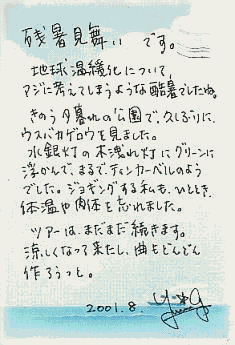 残暑見舞い です。
地球温暖化について、
マジに考えてしまうような酷暑でしたね。
きのう夕暮れの公園で、久しぶりに、
ウスバカゲロウを見ました。
水銀灯の木洩れ灯にグリーンに
浮かんで、まるでティンカーベルのよう
でした。ジョギングする私も、ひととき、
体温や肉体を忘れました。
ツアーは、まだまだ続きます。
涼しくなって来たし、曲もどんどん
作ろうっと。
2001.8.